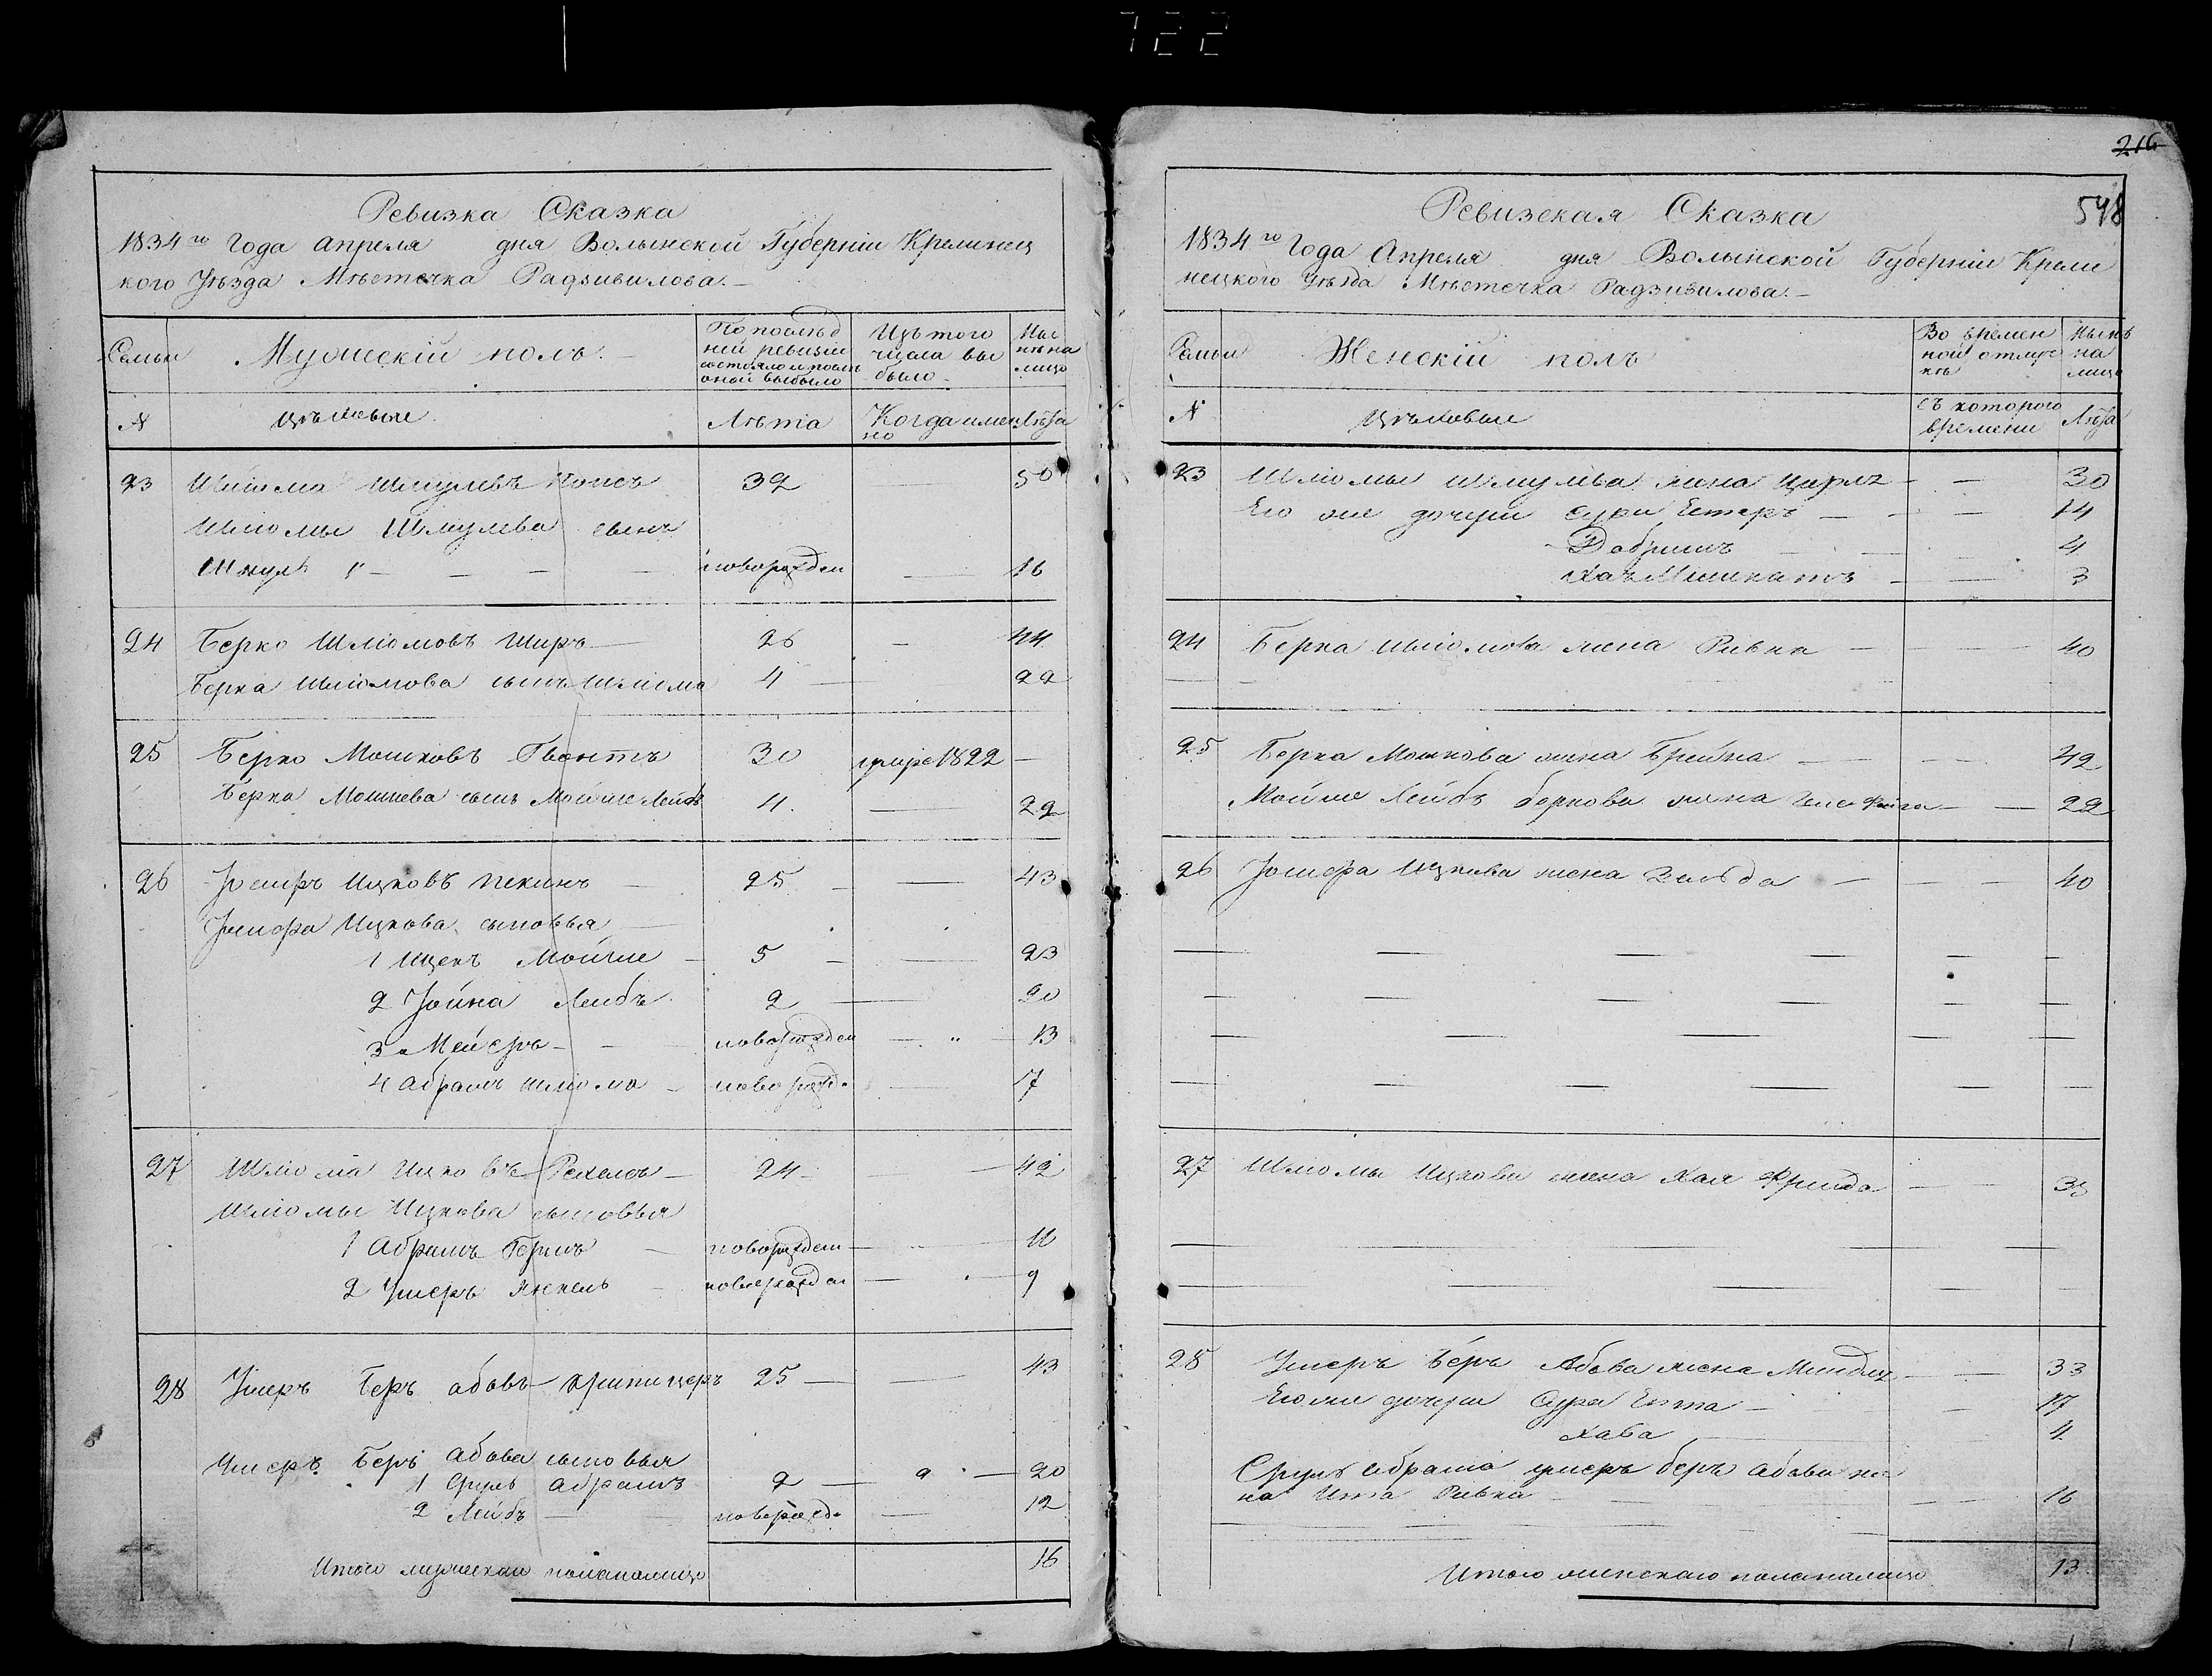 722
216
548
Ревизка Сказка
1834го Года Апреля дня Волынской Губерніи Кремянец
кого Уѣзда Мѣстечка Радзивилова.
Семьи
Мужескій полъ.
По послѣд
ней ревизіи
состояло и послѣ
оной выбыло
Изъ того
числа вы
было
Ны
нѣ на
лицо
№
Лѣта
Когда имен
но
Лѣта
23 Шлиома Шмулевъ 32 — 50
Шлиомы Шмулева сынъ
Шмуль новорожден — 16
24 Берко Шлиомовъ Ширъ 26 — 44
Берка Шлиомова сынъ Шлиома 4 — 22
25 Берко Мошковъ 30 умре 1822 —
Берка Мошкова сынъ Мойше Лейбъ 4 — 22
26 Ицковъ 25 — 43
Ицкова сыновья
1 Ицекъ Мойше 5 — 23
2 Йойна Лейбъ 2 — 20
3 Мейеръ новорожден — 13
4 Абрамъ Шлиома новорожд. 17
27 Шлиома Ицковъ 24 — 42
Шлиомы Ицкова сыновья
1 Абрамъ Гершъ новорожден —
2 Ушеръ Янкель новорожден — 9
28 Ушеръ Беръ Абовъ 25 — 43
Ушеръ Беръ Абова сыновья
1 Сруль Абрамъ 2 — 20
2 Лейбъ новорожд. — 12
Итого мужеска пола налицо 16
Ревизская Сказка
1834го Года Апреля дня Волынской Губерніи Креме
нецкого Уѣзда Мѣстечка Радзивилова.
Семьи
Женскій полъ
Во времен
ной отлуч
кѣ
Нынѣ
на
лицо
№
съ которого
времени
Лѣта
23 Шлиомы Шмулева жена Цирля — 30
Его же дочери Сура Естеръ — 14
Добришъ 4
3
24 Берка Шлиомова жена Ривка — 40
25 Берка Мошкова жена Брейна — 42
Мойше Лейбъ Беркова жена Фейга — 22
26 Ицкова жена Зельда — 40
27 Шлиомы Ицкова жена Хая Фрейда —
28 Ушеръ Беръ Абова жена Миндля — 33
Его же дочери Сура Ента — 17
Хава 4
Сруль Абрама Ушеръ Беръ Абова же
на Ита Ривка — 16
Итого женскаго пола налицо 13